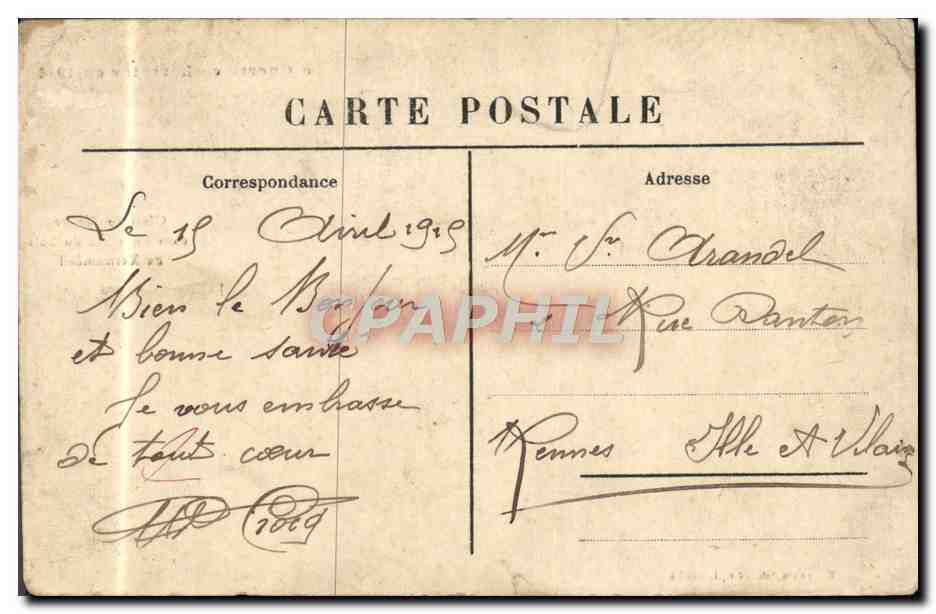 CARTE POSTALE
Correspondance
Le 15 Avril 1915
Bien le Bonjour
et bonne santé
Je vous embrasse
de tout cœur
Adresse
Mr Vr Arandel
2 Rue Danton
Rennes Ille et Vilaine
CPAPHIL